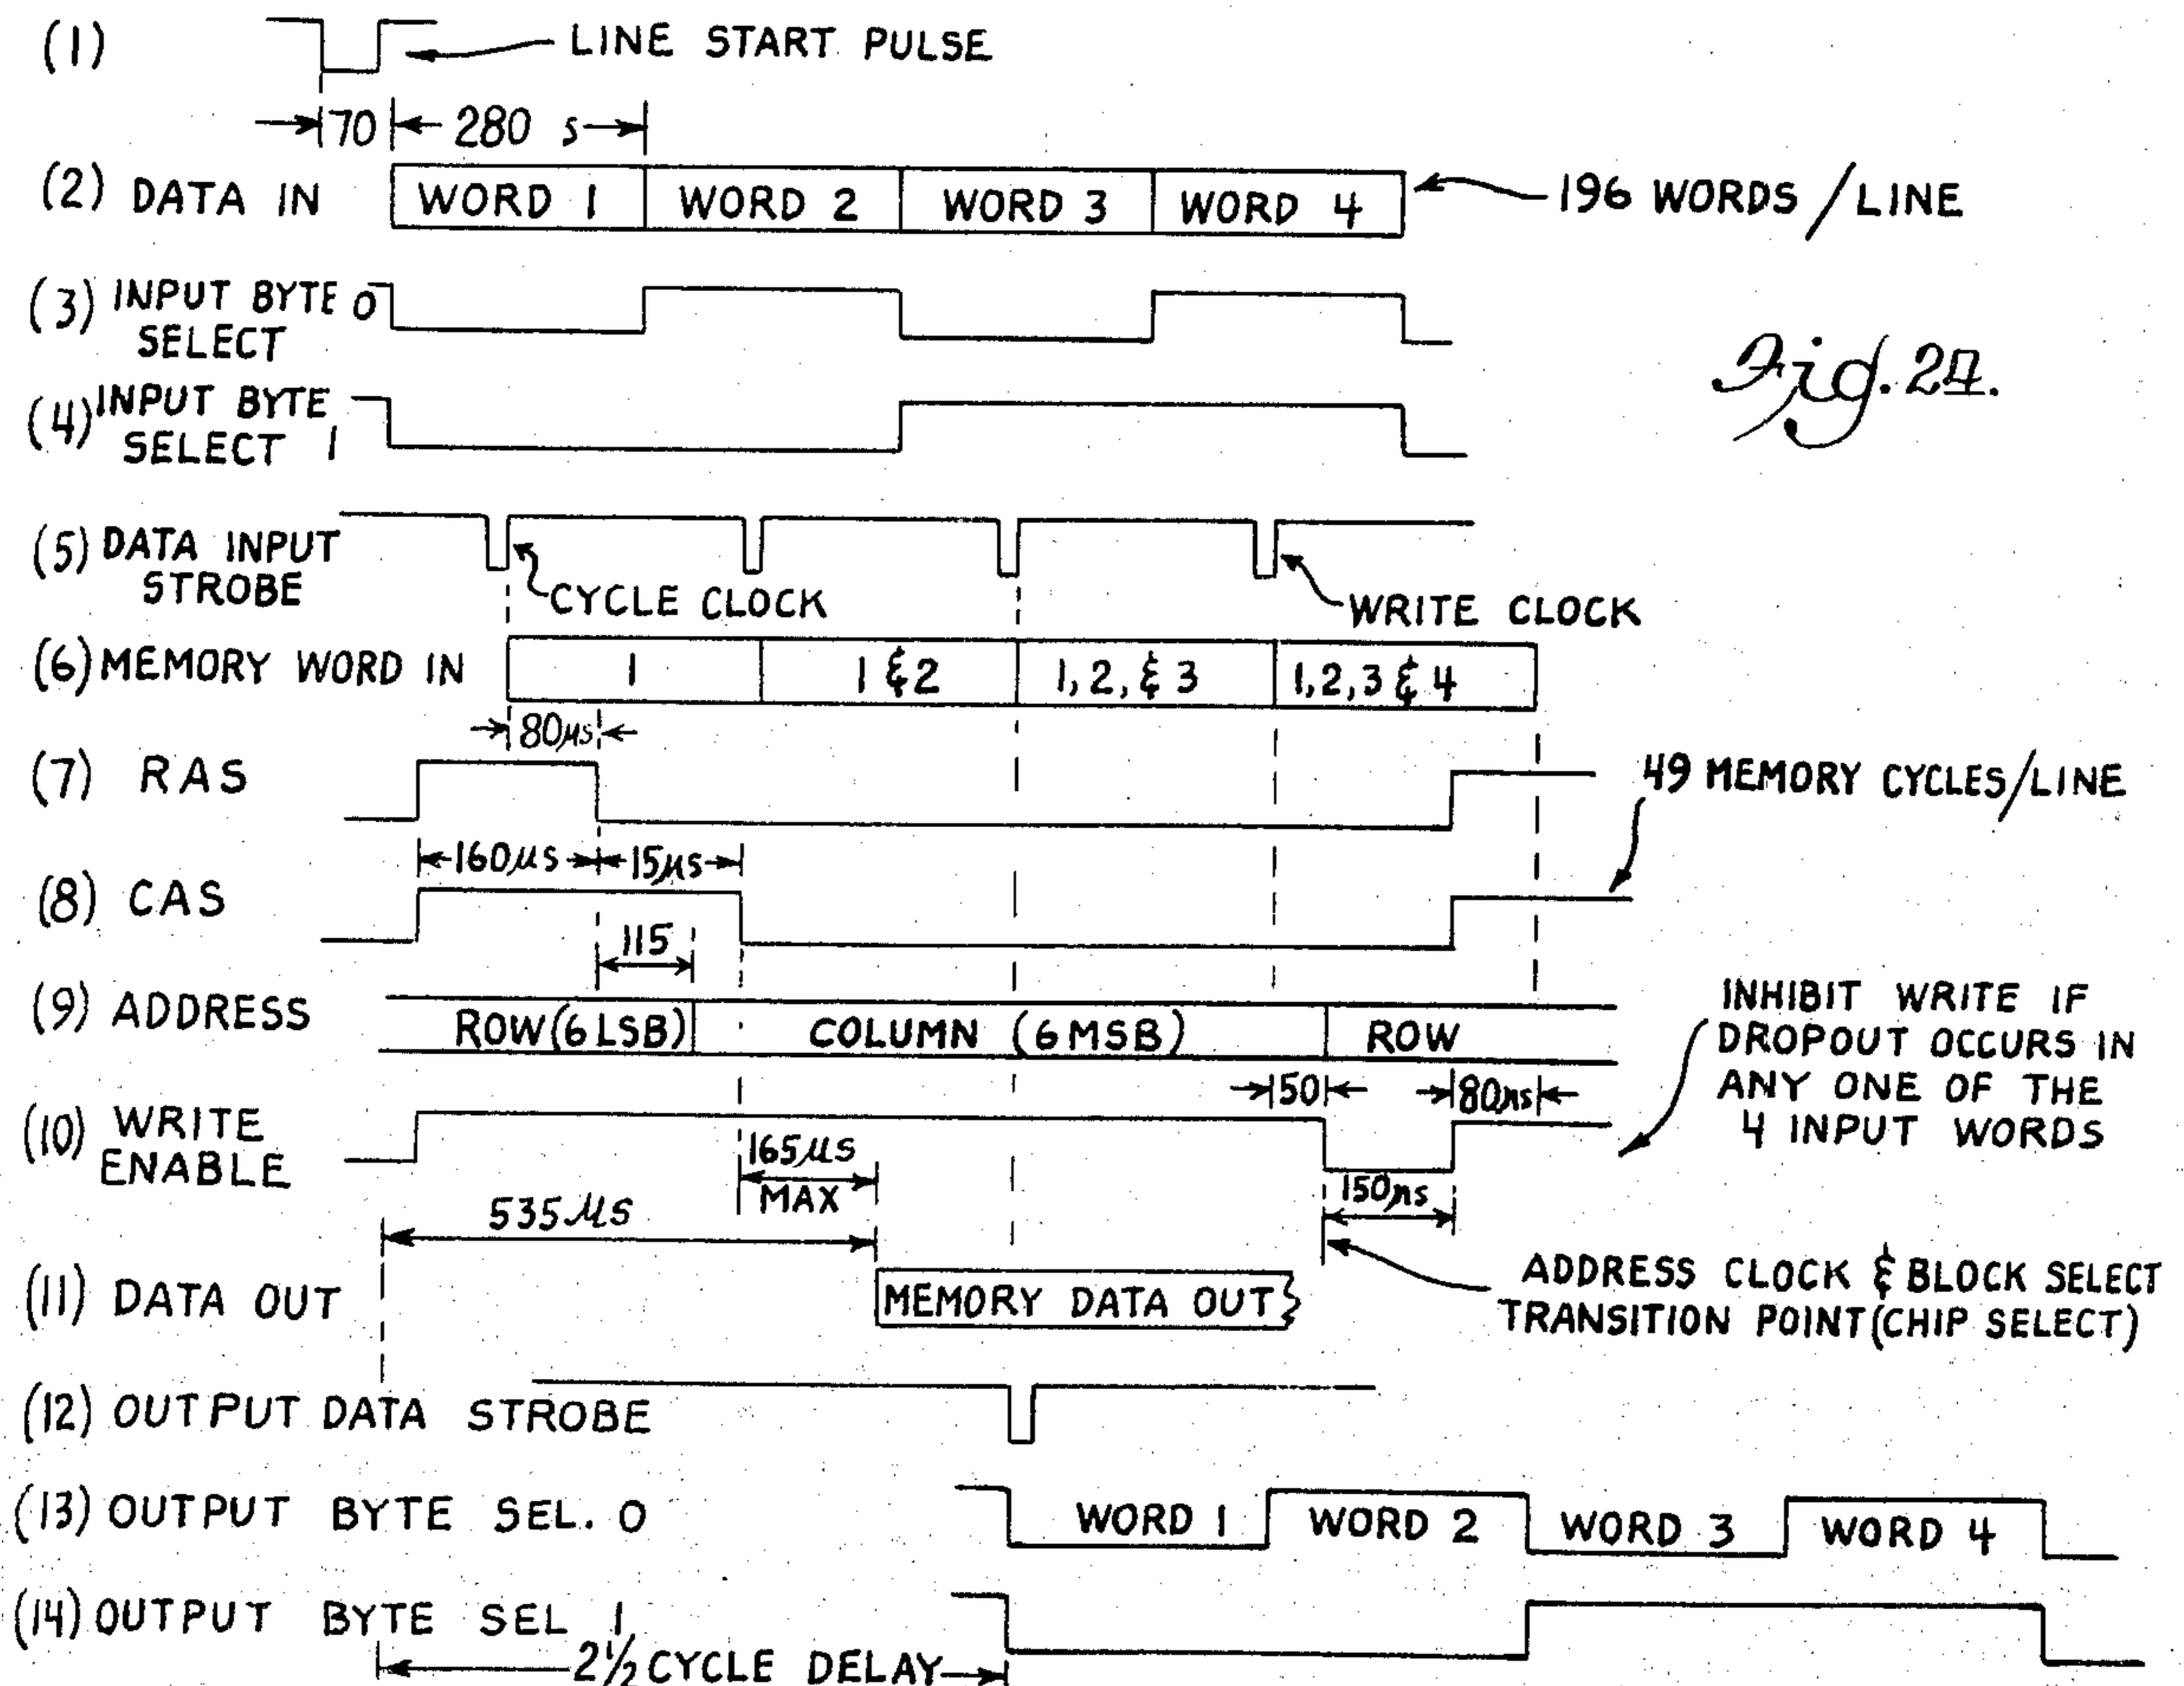 (1)
LINE START PULSE
70
280 s
(2) DATA IN
WORD 1
WORD 2
WORD 3
WORD 4
196 WORDS / LINE
(3) INPUT BYTE 0
SELECT
Fig. 24.
(4) INPUT BYTE
SELECT 1
(5) DATA INPUT
STROBE
CYCLE CLOCK
WRITE CLOCK
(6) MEMORY WORD IN
1
1 & 2
1, 2, & 3
1, 2, 3 & 4
80µs
(7) RAS
49 MEMORY CYCLES/LINE
160µs
15µs
(8) CAS
115
(9) ADDRESS
ROW (6 LSB)
COLUMN (6 MSB)
ROW
INHIBIT WRITE IF
DROPOUT OCCURS IN
ANY ONE OF THE
4 INPUT WORDS
50
80ns
(10) WRITE
ENABLE
165µs
MAX
150ns
535µs
ADDRESS CLOCK & BLOCK SELECT
TRANSITION POINT (CHIP SELECT)
(11) DATA OUT
MEMORY DATA OUT
(12) OUTPUT DATA STROBE
(13) OUTPUT BYTE SEL. 0
WORD 1
WORD 2
WORD 3
WORD 4
(14) OUTPUT BYTE SEL 1
2½ CYCLE DELAY